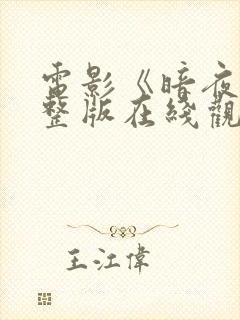 電影《暗夜
整版在綫觀
王江偉